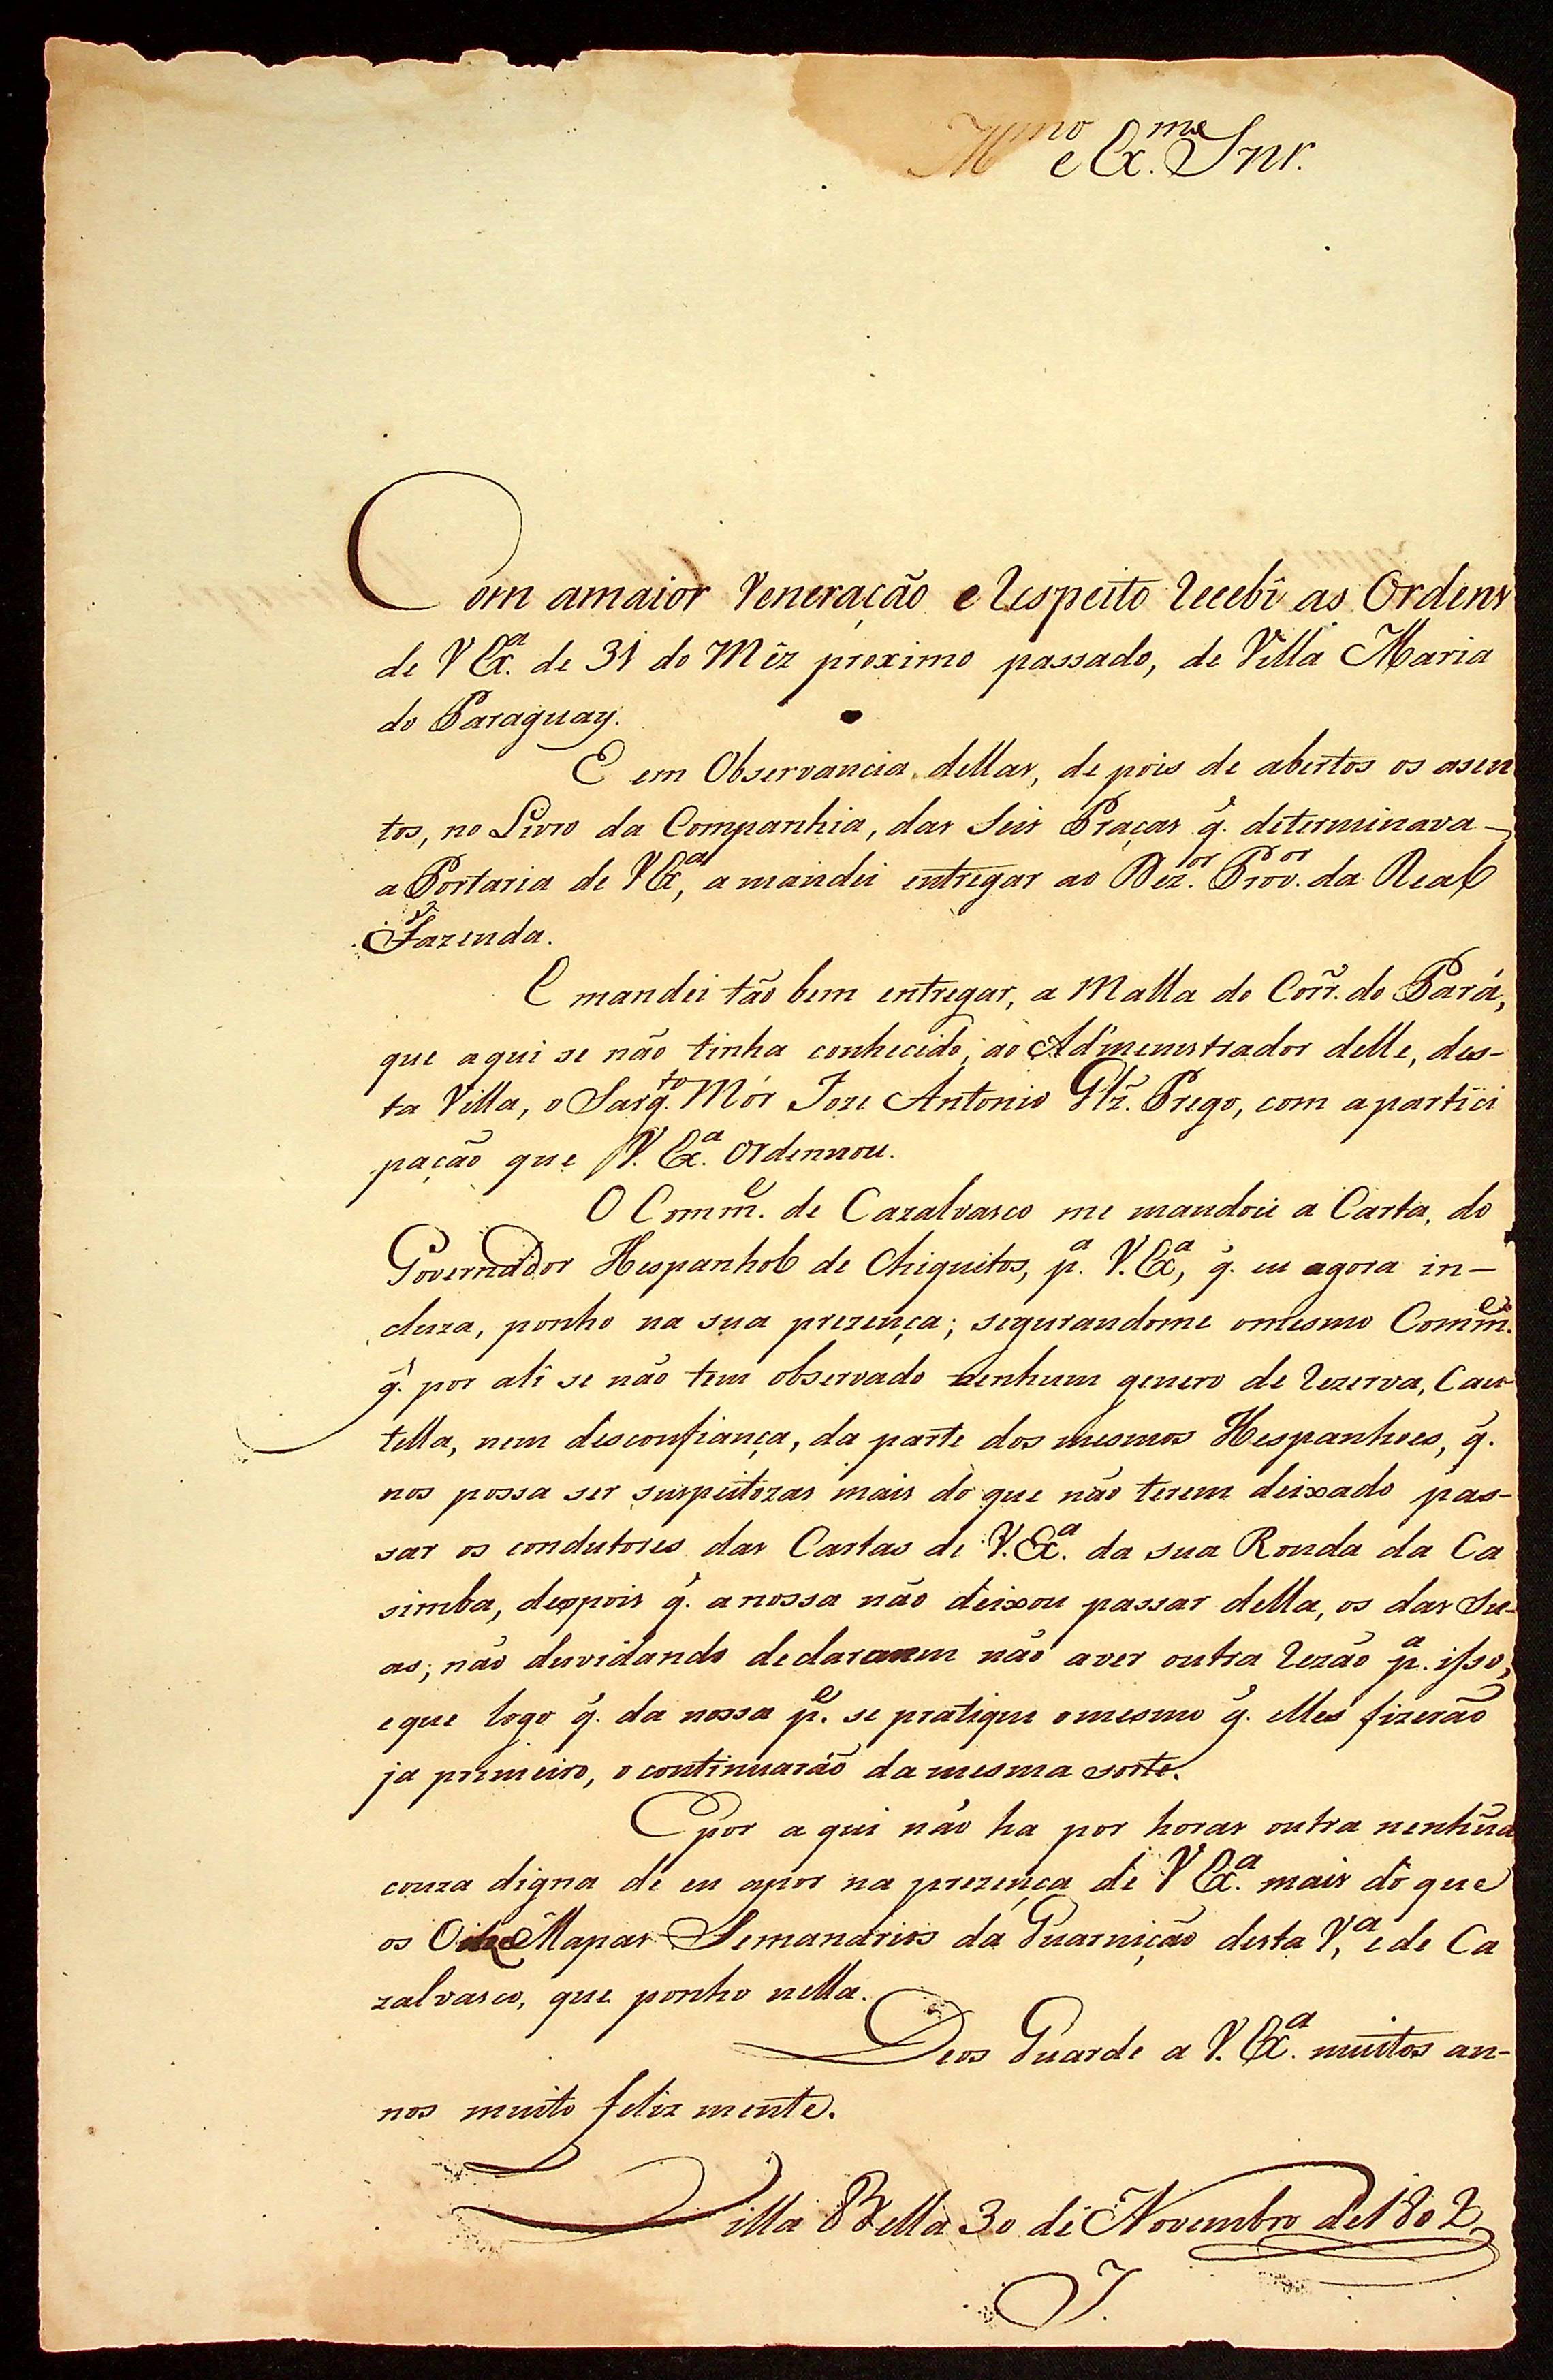 Illmo e Exmo Snr.
Com amaior Veneração e Respeito Recebî as Ordens
de V Exª. de 31 do Mêz proximo passado, de Villa Maria
do Paraguay.
E em Observancia dellas, de pois de abertos os asen
tos, no Livro da Companhia, das Seis Praças q̃. determinava
a Portaria de V Exª, a mandei entregar ao Dez.or Prov.or da Real
Fazenda.
E mandei tão bem entregar, a Malla do Corr̃. do Pará,
que aqui se não tinha conhecido, ao Admenistrador delle, des-
ta Villa, o Sarg.to Mór Joze Antonio Glz̃. Prego, com a partici
pação que V. Exª. Ordennou.
O Comm̃.e de Cazalvasco me mandou a Carta, do
Governador Hespanhol de Chiquitos, p.ª V. Exª, q̃. eu agora in-
cluza, ponho na sua prezença; segurandome omesmo Comm̃.e
q̃. por alî se não tem observado nenhum genero de Rezerva, Cau-
tella, nem disconfiança, da parte dos mesmos Hespanhoes, q̃.
nos possa ser suspeitozas mais do que não terem deixado pas-
sar os condutores das Cartas de V. Exª. da sua Ronda da Ca
simba, despois q̃. a nossa não deixou passar della, os das Su-
as; não duvidando declararem não aver outra Rezão p.ª isso,
e que logo q̃. da nossa p.e se pratique omesmo q̃. elles fizerão
ja primeiro, o continuarão da mesma sorte.
E por aqui não ha por horas outra nenhũa
couza digna de eu apor na prezença de V Exª. mais do que
os Oito Mapas Semanarios da Guarnição desta V.ª e de Ca
zalvasco, que ponho nella.
Deos Guarde a V. Exª. muitos an-
nos muito feliz mente.
Villa Bella 30 de Novembro de 1802
J.